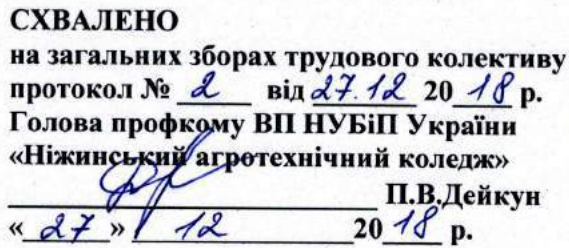 СХВАЛЕНО
на загальних зборах трудового колективу
протокол № 2 від 27.12 2018 р.
Голова профкому ВП НУБіП України
«Ніжинський агротехнічний коледж»
П.В.Дейкун
«27» 12 2018 р.